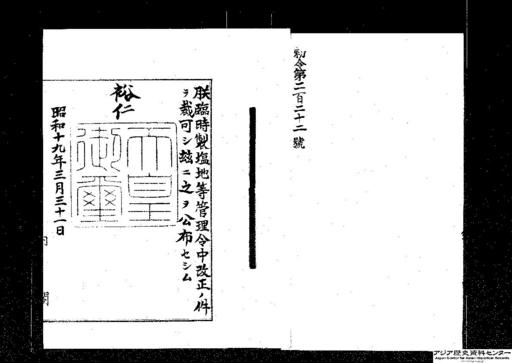 勅令第二百二十二號
朕臨時製塩地等管理令中改正ノ件
ヲ裁可シ茲ニ之ヲ公布セシム
裕仁
天皇
御璽
昭和十九年三月三十一日
内閣
アジア歴史資料センター
Japan Center for Asian Historical Records